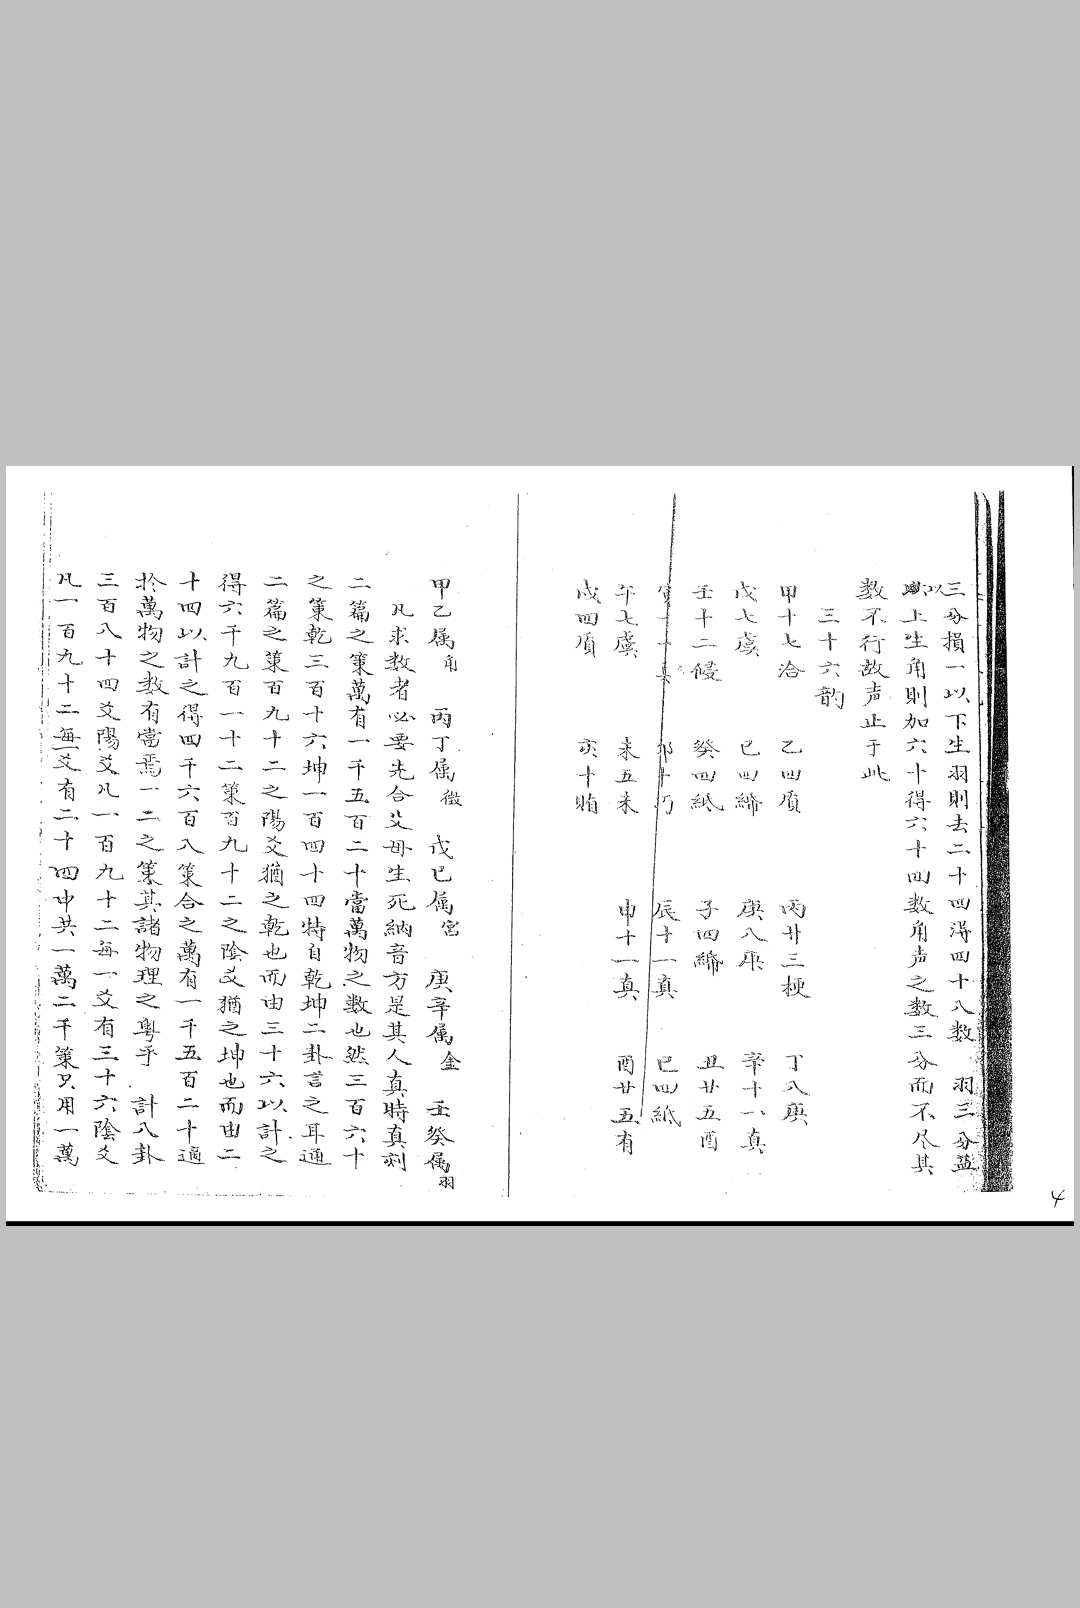 三分損一以下生羽則去二十四得四十八数 羽三分益
以上生角則加六十得六十四数角声之数三分而不尽其
数不行故声止于此
三十六韵
甲十七洽 乙四質 丙廿三梗 丁八庚
戊七虞 巳四緕 庚八庚 辛十一真
壬十二侵 癸四紙 子四緕 丑廿五酉
寅十一真 卯十巧 辰十一真 巳四紙
午七虞 未五未 申十一真 酉廿五有
戌四質 亥十賄
甲乙属角 丙丁属徵 戊巳属宮 庚辛属金 壬癸属羽
凡求数者必要先合父母生死納音方是其人真時真刻
二篇之策萬有一千五百二十當萬物之數也然三百六十
之策乾三百十六坤一百四十四特自乾坤二卦言之耳通
二篇之策百九十二之陽爻猶之乾也而由三十六以計之
得六千九百一十二策百九十二之陰爻猶之坤也而由二
十四以計之得四千六百八策合之萬有一千五百二十適
扵萬物之数有當焉一二之策其諸物理之粵乎 計八卦
三百八十四爻陽爻凡一百九十二每一爻有三十六陰爻
凡一百九十二每一爻有二十四中共一萬二千策只用一萬
4